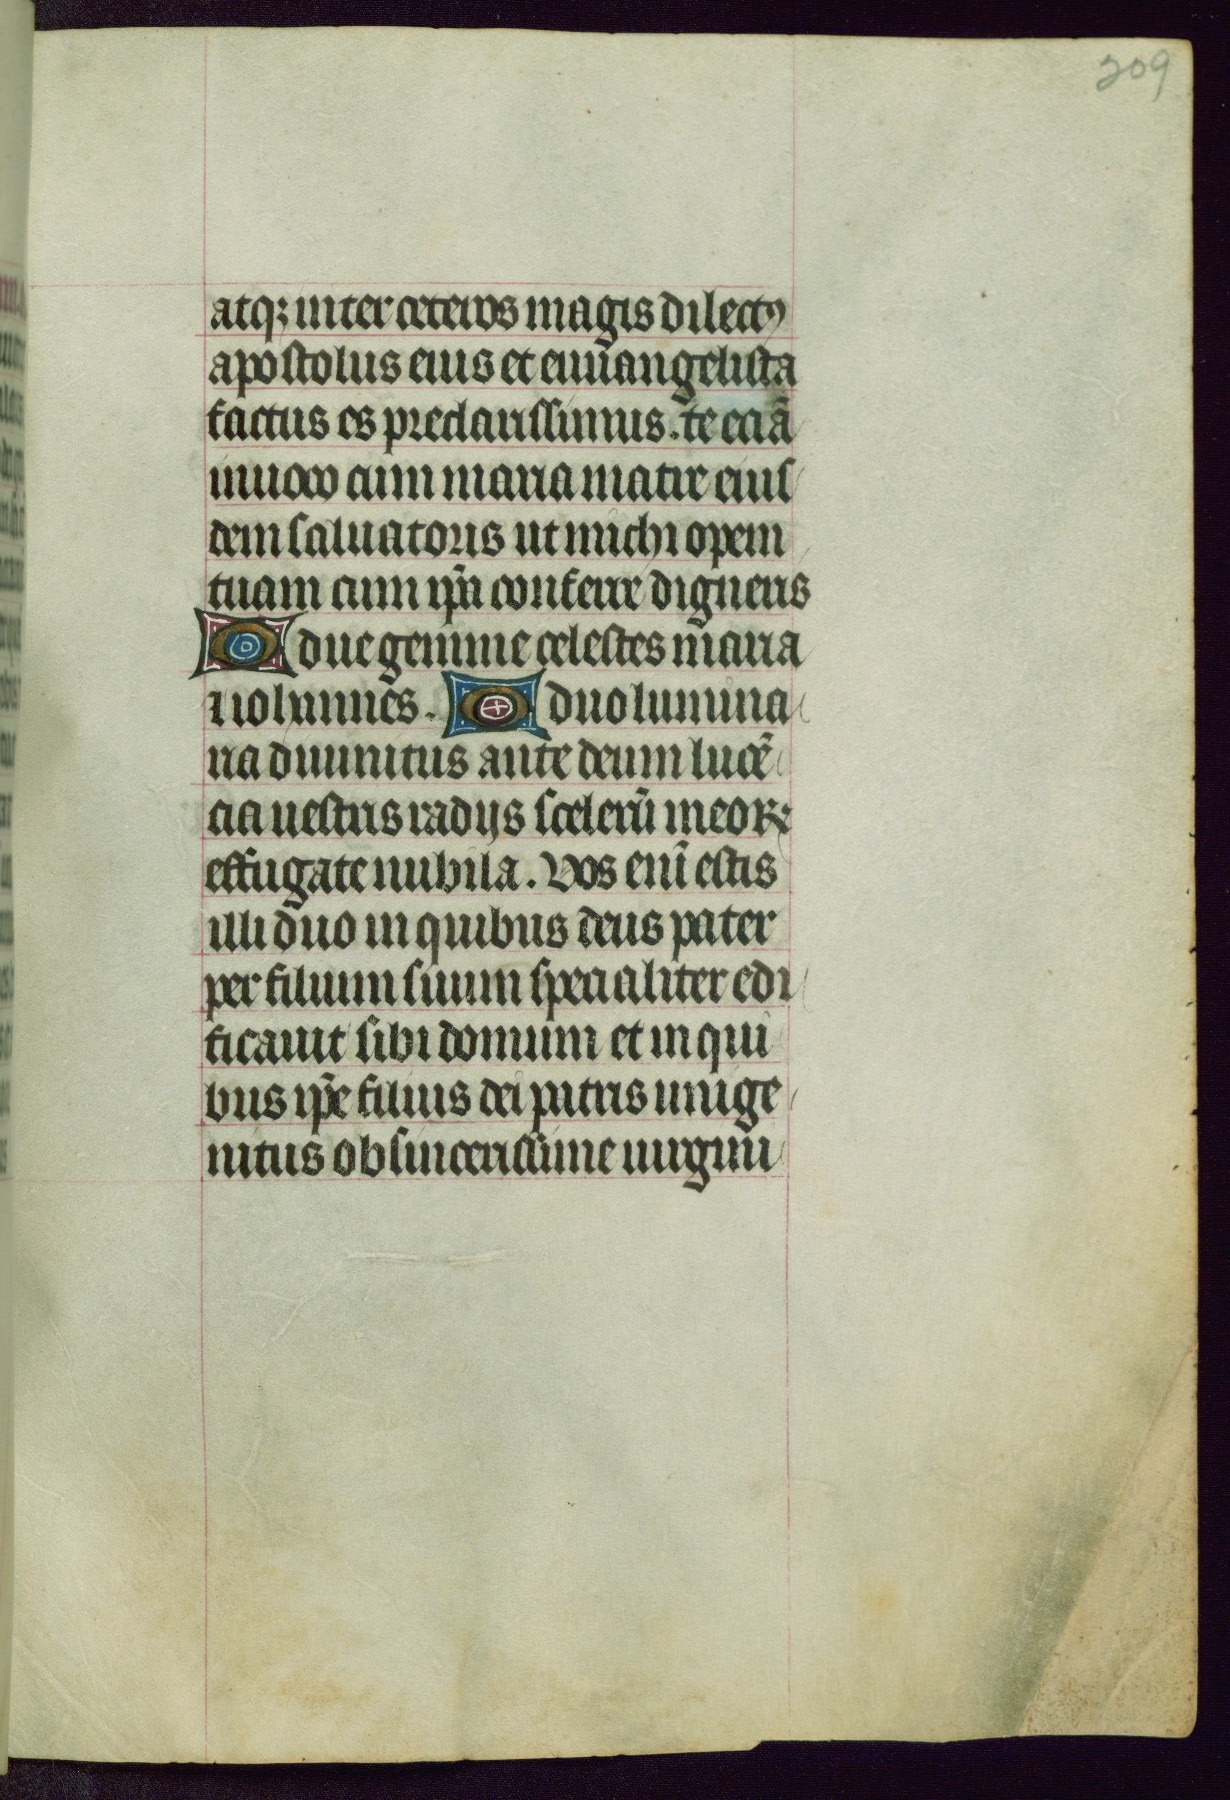 209
atq; inter ceteros magis dilectꝰ
apostolus eius et euuangelista
factus es preclarissimus. te eciā
inuoco cum maria matre eius
dem saluatoris ut michi opem
tuam cum ip̄a conferre digneris
O due gemme celestes maria
i iohannes. O duo lumina
ria diuinitus ante deum lucē
cia uestris radijs scelerū meoꝝ
effugate nubila. Vos eni̅ estis
illi duo in quibus deus pater
per filium suum specialiter edi
ficauit sibi domum et in qui
bus ip̄e filius dei patris unige
nitus ob sincerissime uirgini